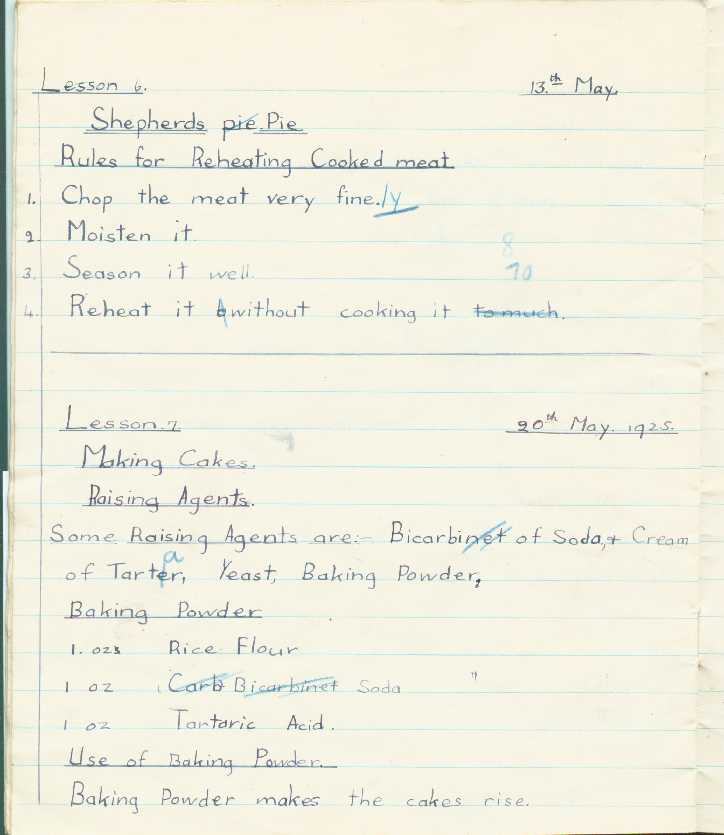 Lesson 6. 13th May.
Shepherds pie. Pie
Rules for Reheating Cooked meat
1. Chop the meat very fine.ly
2. Moisten it.
8
3. Season it well.
10
4. Reheat it without cooking it to much.
Lesson.7 20th May. 1925.
Making Cakes.
Raising Agents.
Some Raising Agents are:- Bicarbinet of Soda,+ Cream
a
of Tarter, Yeast, Baking Powder,
Baking Powder
1. ozs Rice Flour
1 oz Carb Bicarbinet Soda "
1 oz Tartaric Acid.
Use of Baking Powder.
Baking Powder makes the cakes rise.